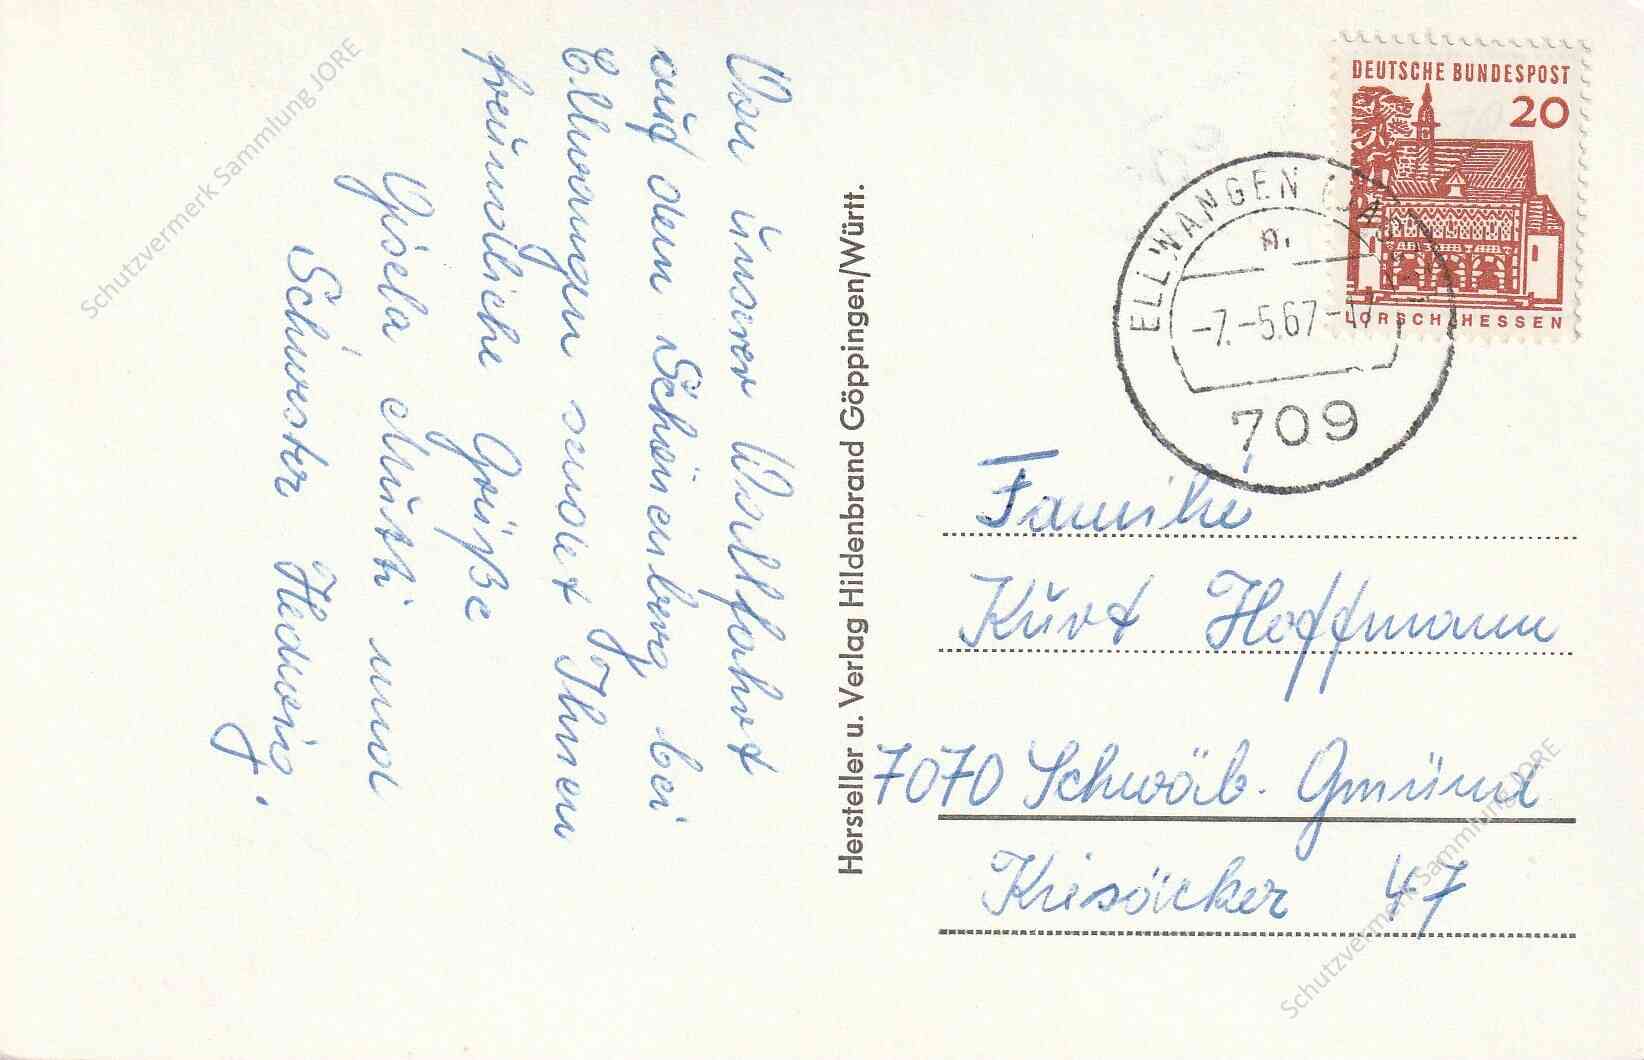 Von unserer Wallfahrt
auf dem Schönenberg bei
Ellwangen sendet Ihnen
freundliche Grüße
Gisela Mutti und
Schwester Hedwig.
Hersteller u. Verlag Hildenbrand Göppingen/Württ.
DEUTSCHE BUNDESPOST
20
LORSCH HESSEN
ELLWANGEN (JAGST)
-7.-5.67-17
709
Familie
Kurt Hoffmann
7070 Schwäb. Gmünd
Kiesäcker 47
Schutzvermerk Sammlung JORE
Schutzvermerk Sammlung JORE